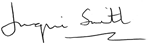 Jacqui Smith